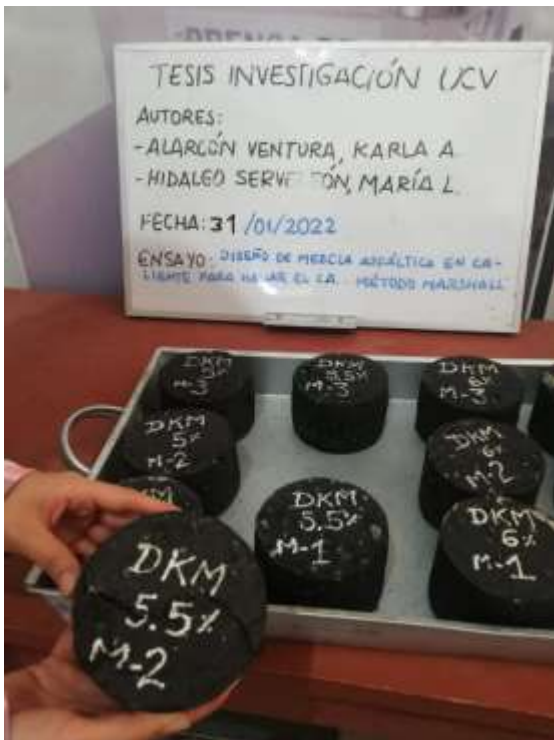 TESIS INVESTIGACIÓN UCV
AUTORES:
-ALARCÓN VENTURA, KARLA A.
-HIDALGO MARÍA L.
FECHA: 31/01/2022
ENSAYO: DISEÑO DE MEZCLA ASFÁLTICA EN CA-
LIENTE PARA EL CA. MÉTODO MARSHALL
DKM
5%
M-3
DKM
5.5%
M-3
DKM
6%
M-3
DKM
5%
M-2
DKM
6%
M-2
DKM
DKM
5.5%
M-1
DKM
6%
M-1
DKM
5.5%
M-2